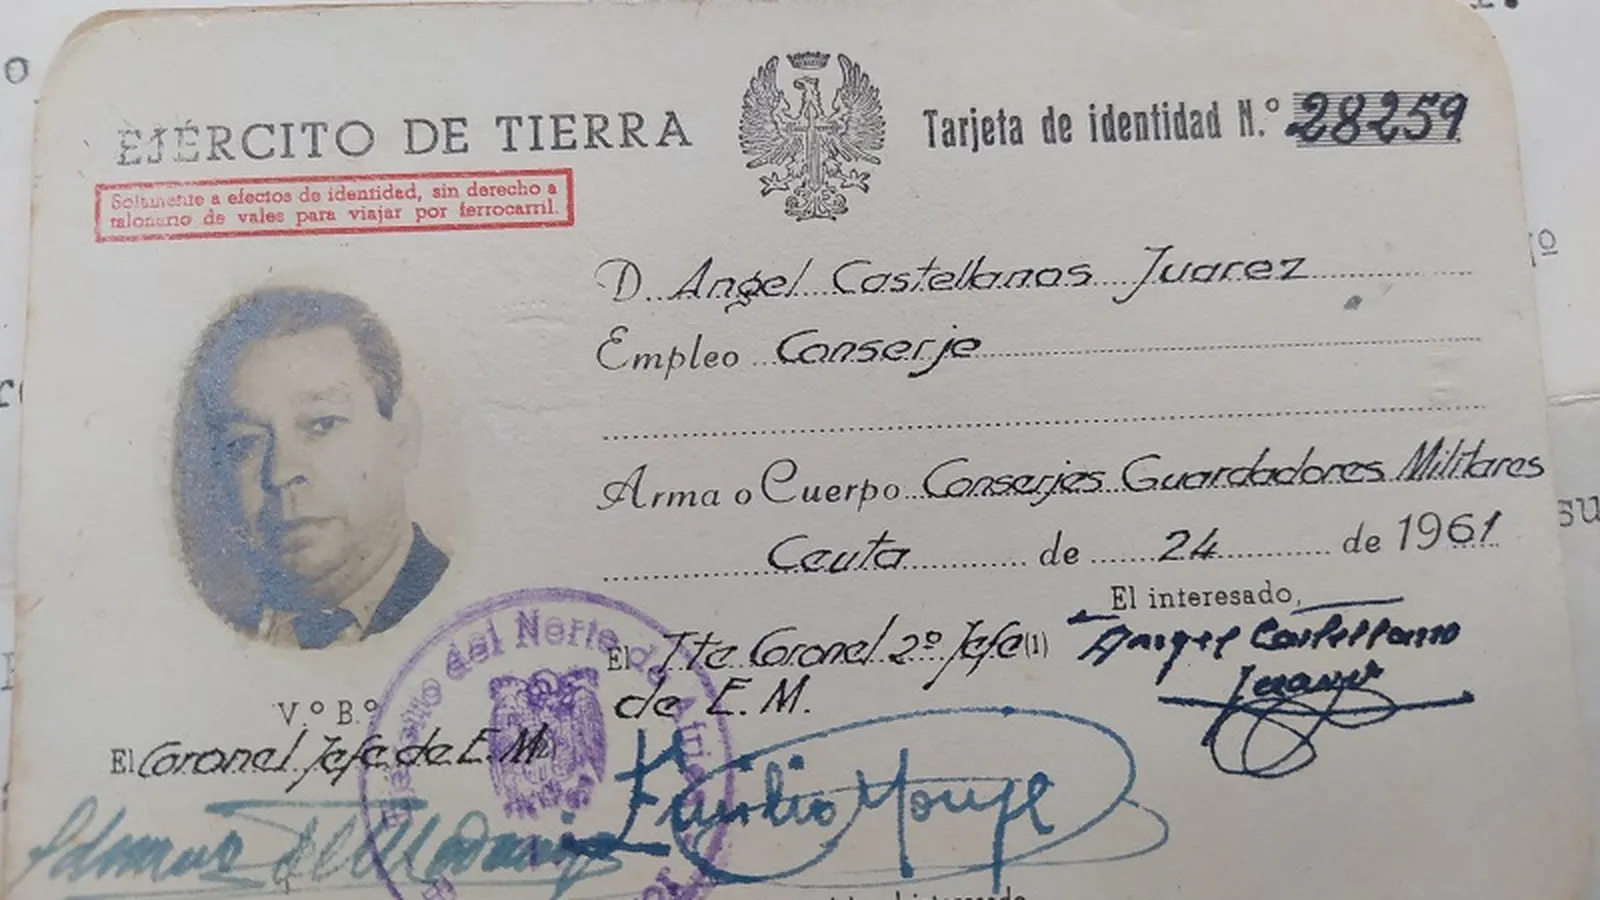 EJÉRCITO DE TIERRA
Tarjeta de identidad N.º 28259
Solamente a efectos de identidad, sin derecho a
talonario de vales para viajar por ferrocarril.
D. Angel Castellanos Juarez
Empleo Conserje
Arma o Cuerpo Conserjes Guardadores Militares
Ceuta de 24 de 1961
El interesado,
El Tte Coronel 2º Jefe (1)
de E. M.
Angel Castellano
Juarez
V.º B.º
El Coronel Jefe de E. M.
Ejército del Norte de
Emilio Monje